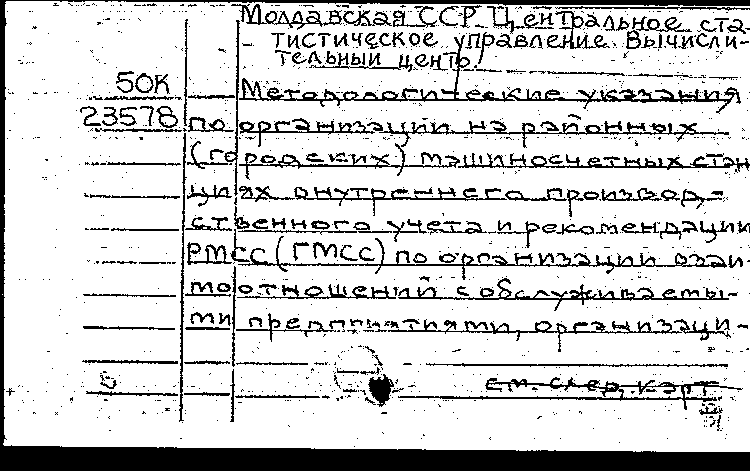 Молдавская ССР. Центральное ста-
тистическое управление. Вычисли-
тельный центр.
50К Методологические указания
23578 по организации на районных
(городских) машиносчетных стан
циях внутреннего производ-
ственного учета и рекомендации
РМСС (ГМСС) по организации взаи
моотношений с обслуживаемы-
ми предприятиями, организаци-
см. след. карт